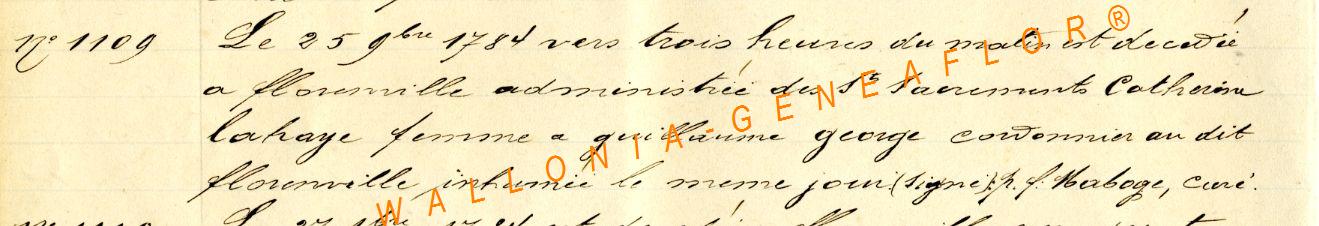 n° 1109 Le 25 9bre 1784 vers trois heures du matin est decedée
a florenville administrée des Sts Sacrements Catherine
lahaye femme a guillaume george cordonnier au dit
florenville inhumée le meme jour (signé) p. f. Maboge, curé.
WALLONIA-GENEAFLOR®